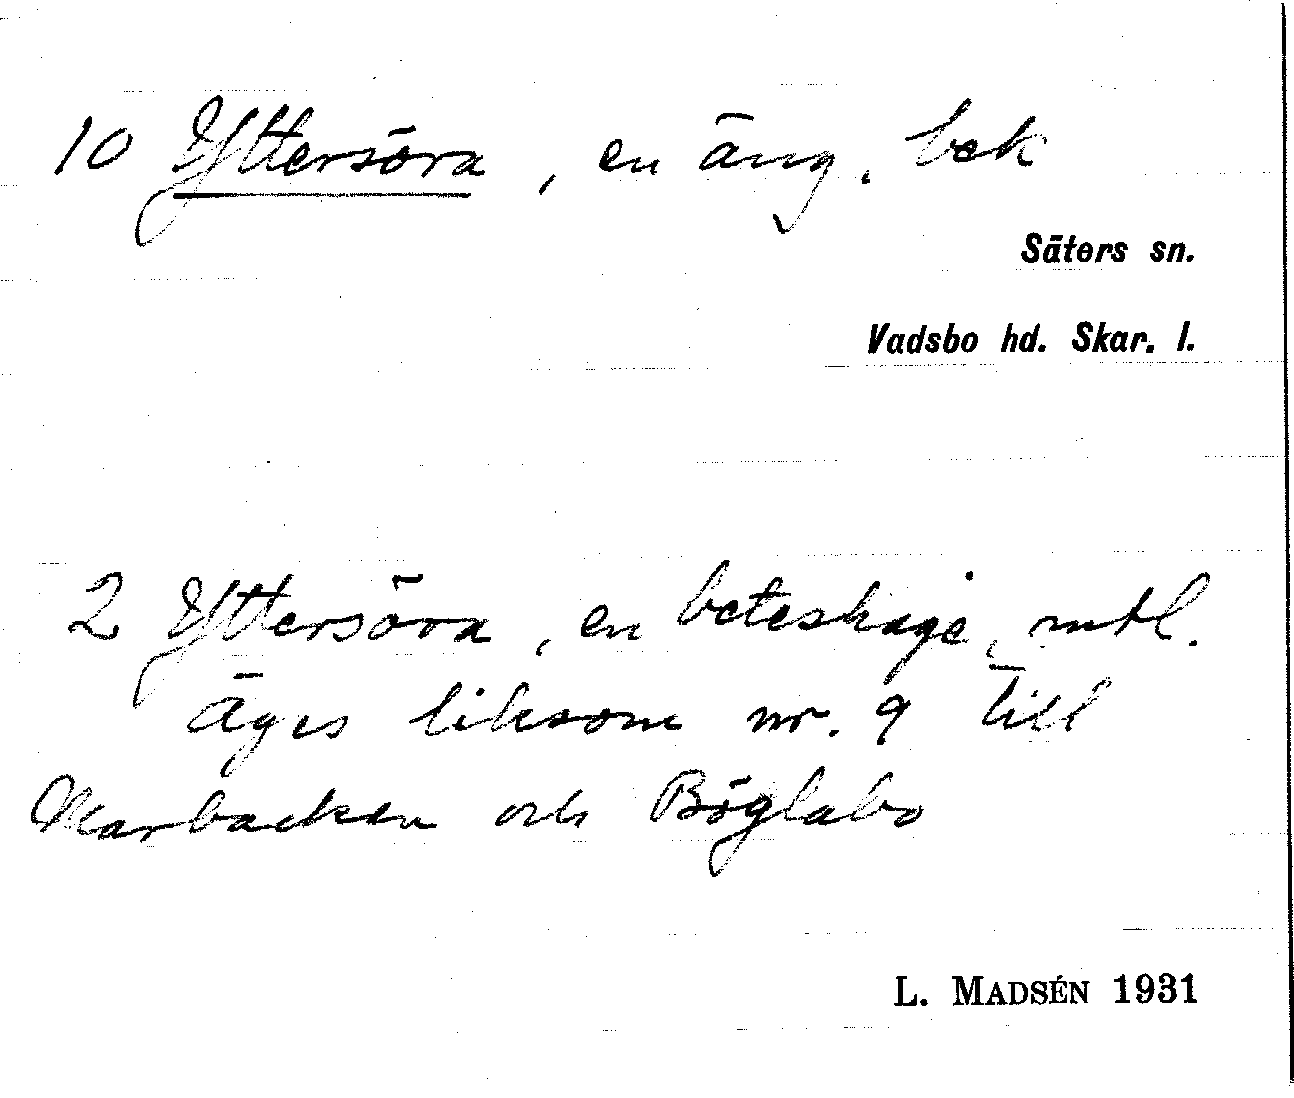 10 Yttersöra, en äng, bek
Säters sn.
Vadsbo hd. Skar. l.
2 Yttersöra, en beteshage, mtl.
Äges liksom nr. 9 till
Karbacken och Böglabo
L. MADSÉN 1931